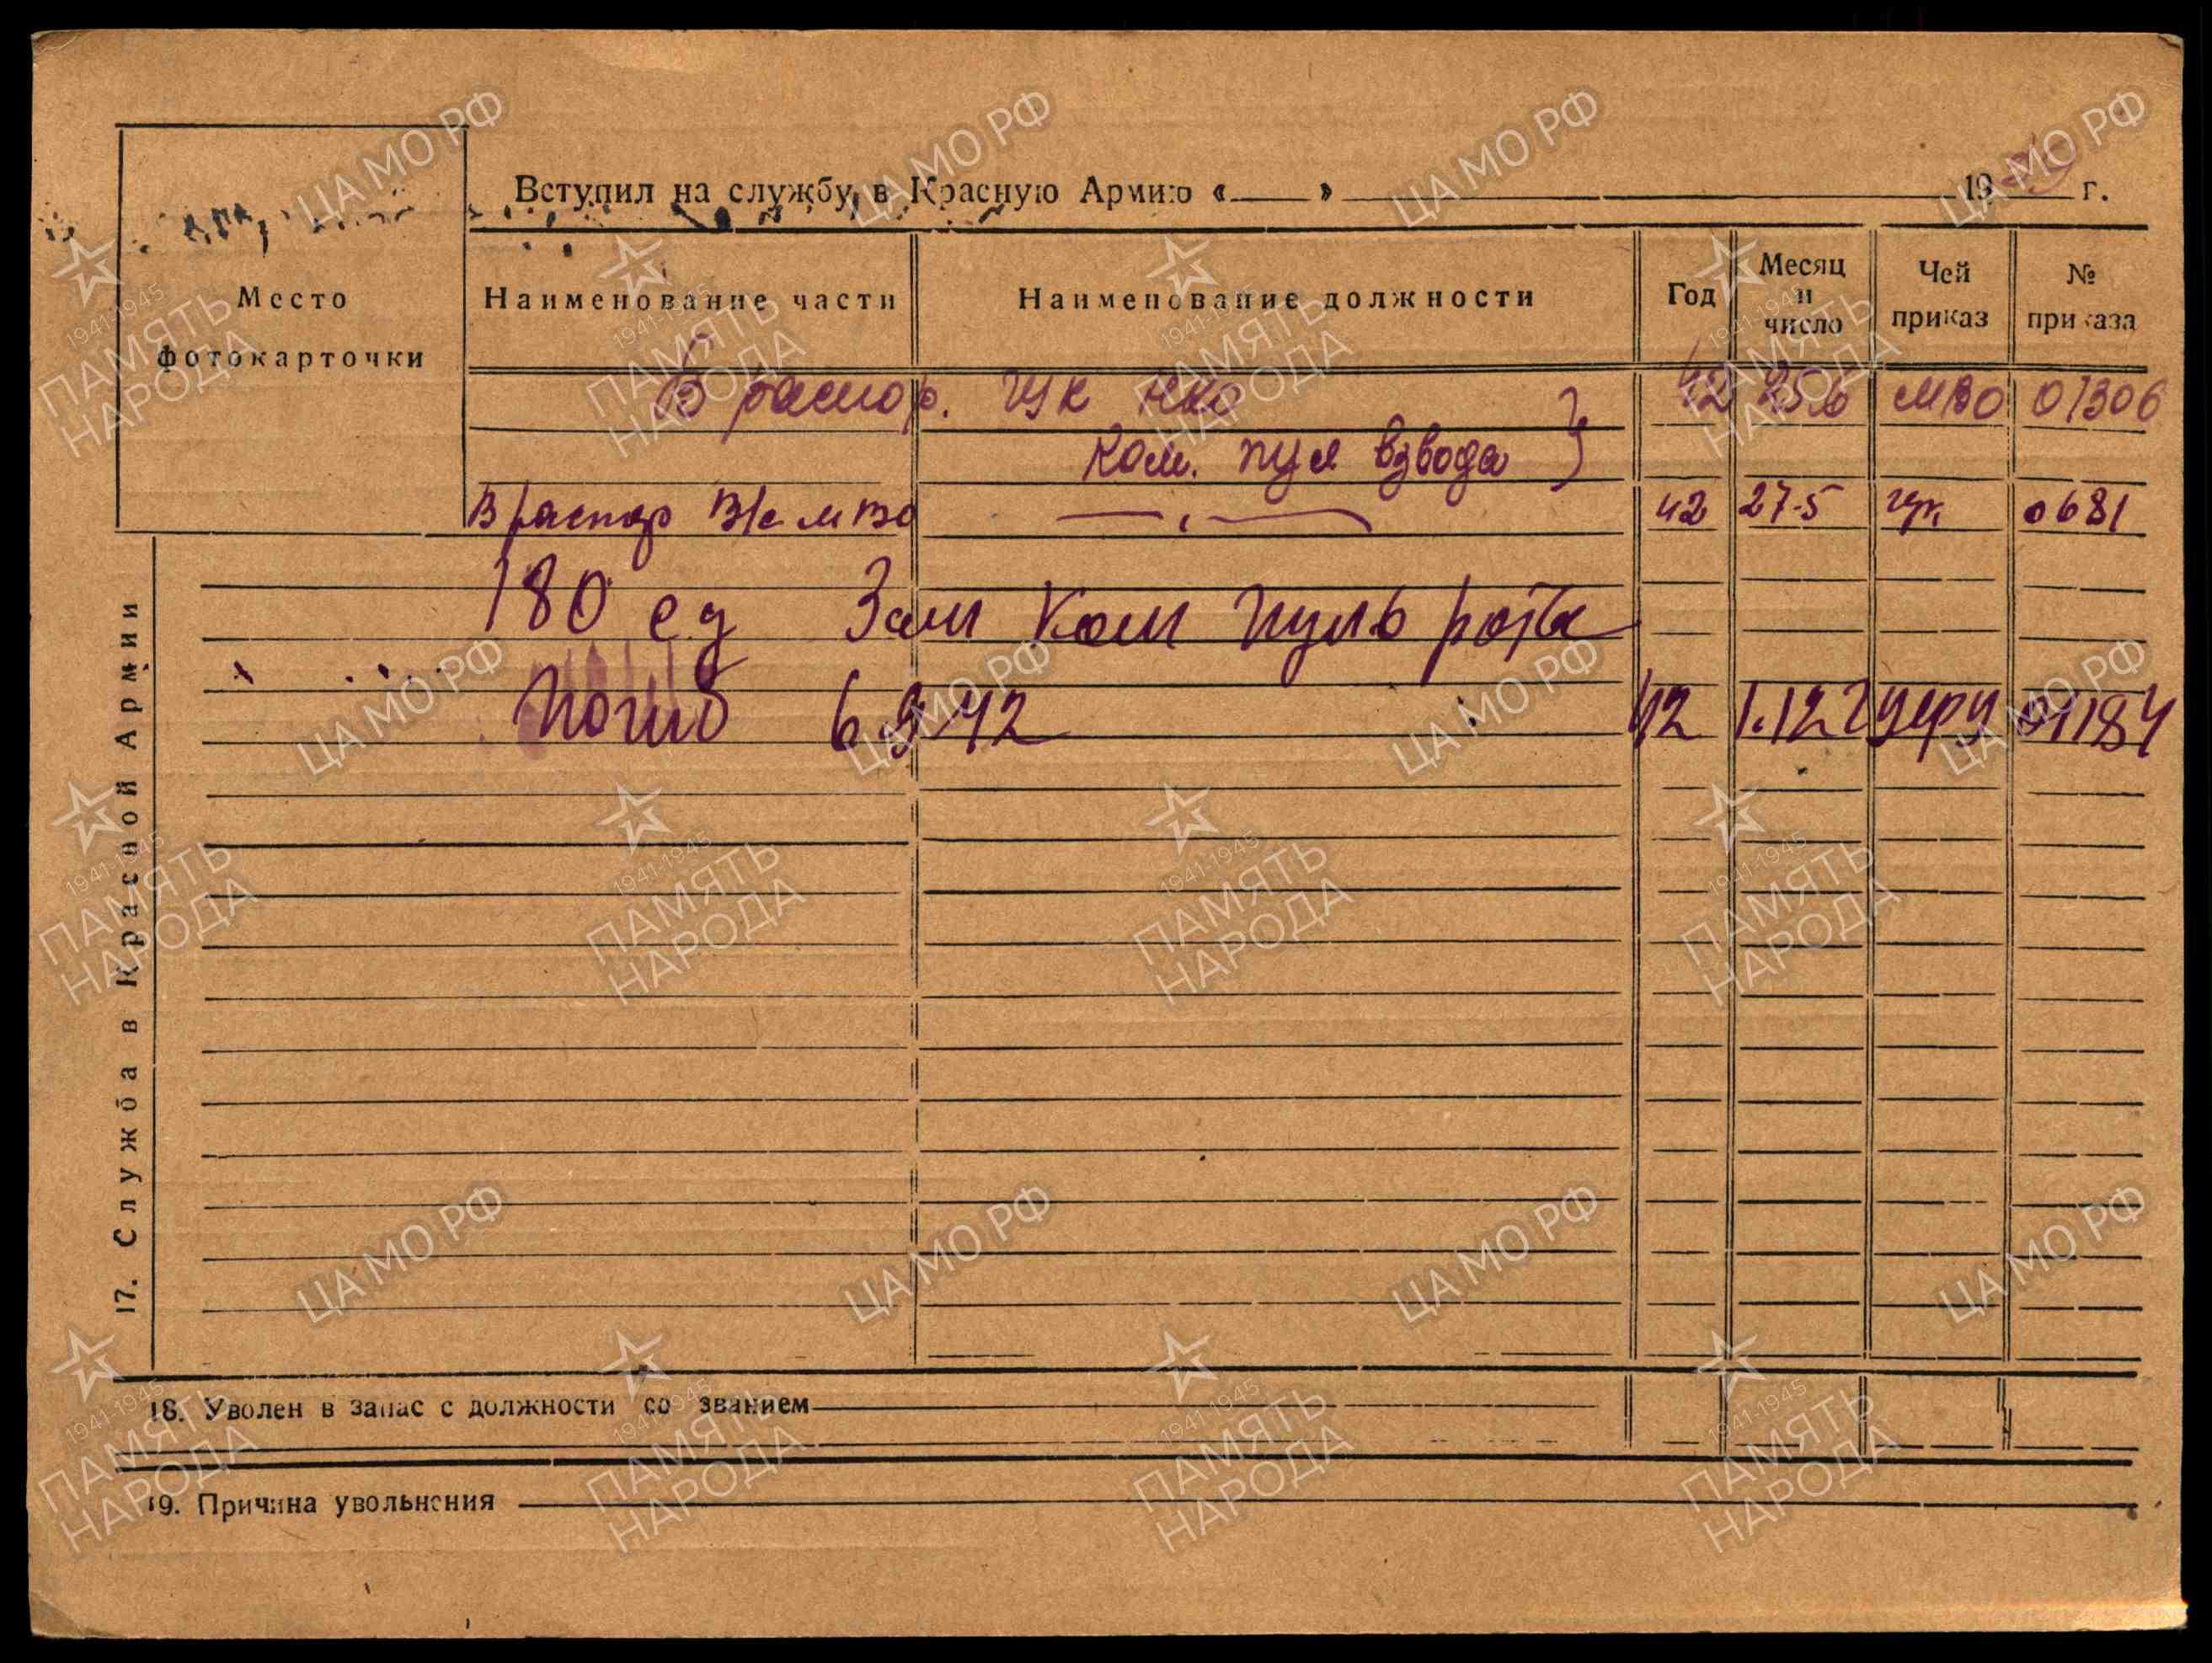 Вступил на службу в Красную Армию «____» 19 г.
Место фотокарточки
Наименование части Наименование должности Год Месяц и число Чей приказ № приказа
В распор. ГУК НКО 42 МВО 01306
Ком. пул взвода }
В распор В/с МВО — " — 42 27-5 гук 0681
180 сд Зам Ком пуль роты
Погиб 6 9 42 42 1.12 гуфу 01184
17. Служба в Красной Армии
18. Уволен в запас с должности со званием
19. Причина увольнения
ЦА МО РФ
1941-1945
ПАМЯТЬ
НАРОДА